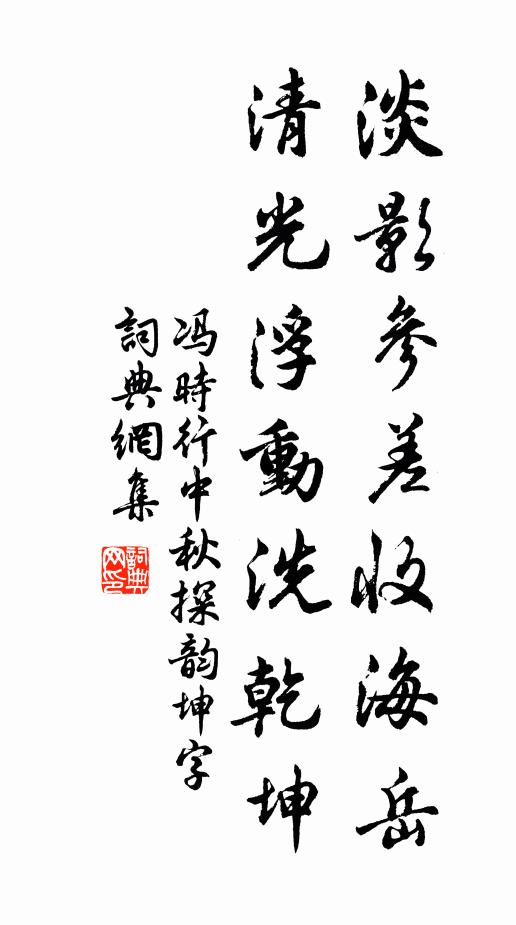 淡影參差收海岳
清光浮動洗乾坤
冯時行中秋探韵坤字
詞典網集
詞典
网印